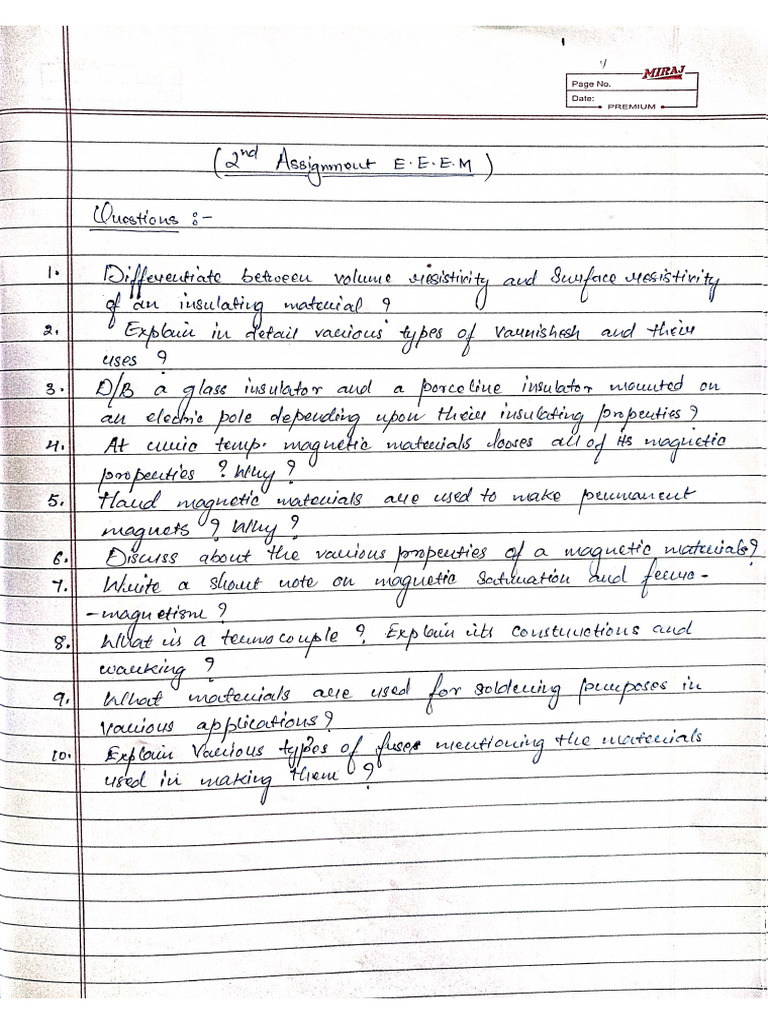 MIRAJ
Page No.
Date:
PREMIUM
(2nd Assignment E.E.E.M)
Questions :-
1. Differentiate between volume resistivity and Surface resistivity
of an insulating material ?
2. Explain in detail various types of varnishesh and their
uses ?
3. D/B a glass insulator and a porceline insulator mounted on
an electric pole depending upon their insulating properties ?
4. At curic temp. magnetic materials looses all of its magnetic
properties ? Why ?
5. Hard magnetic materials are used to make permanent
magnets ? Why ?
6. Discuss about the various properties of a magnetic materials ?
7. Write a short note on magnetic saturation and ferro-
-magnetism ?
8. What is a termocouple ? Explain its constructions and
working ?
9. What materials are used for soldering purposes in
various applications ?
10. Explain Various types of fuses mentioning the materials
used in making them ?